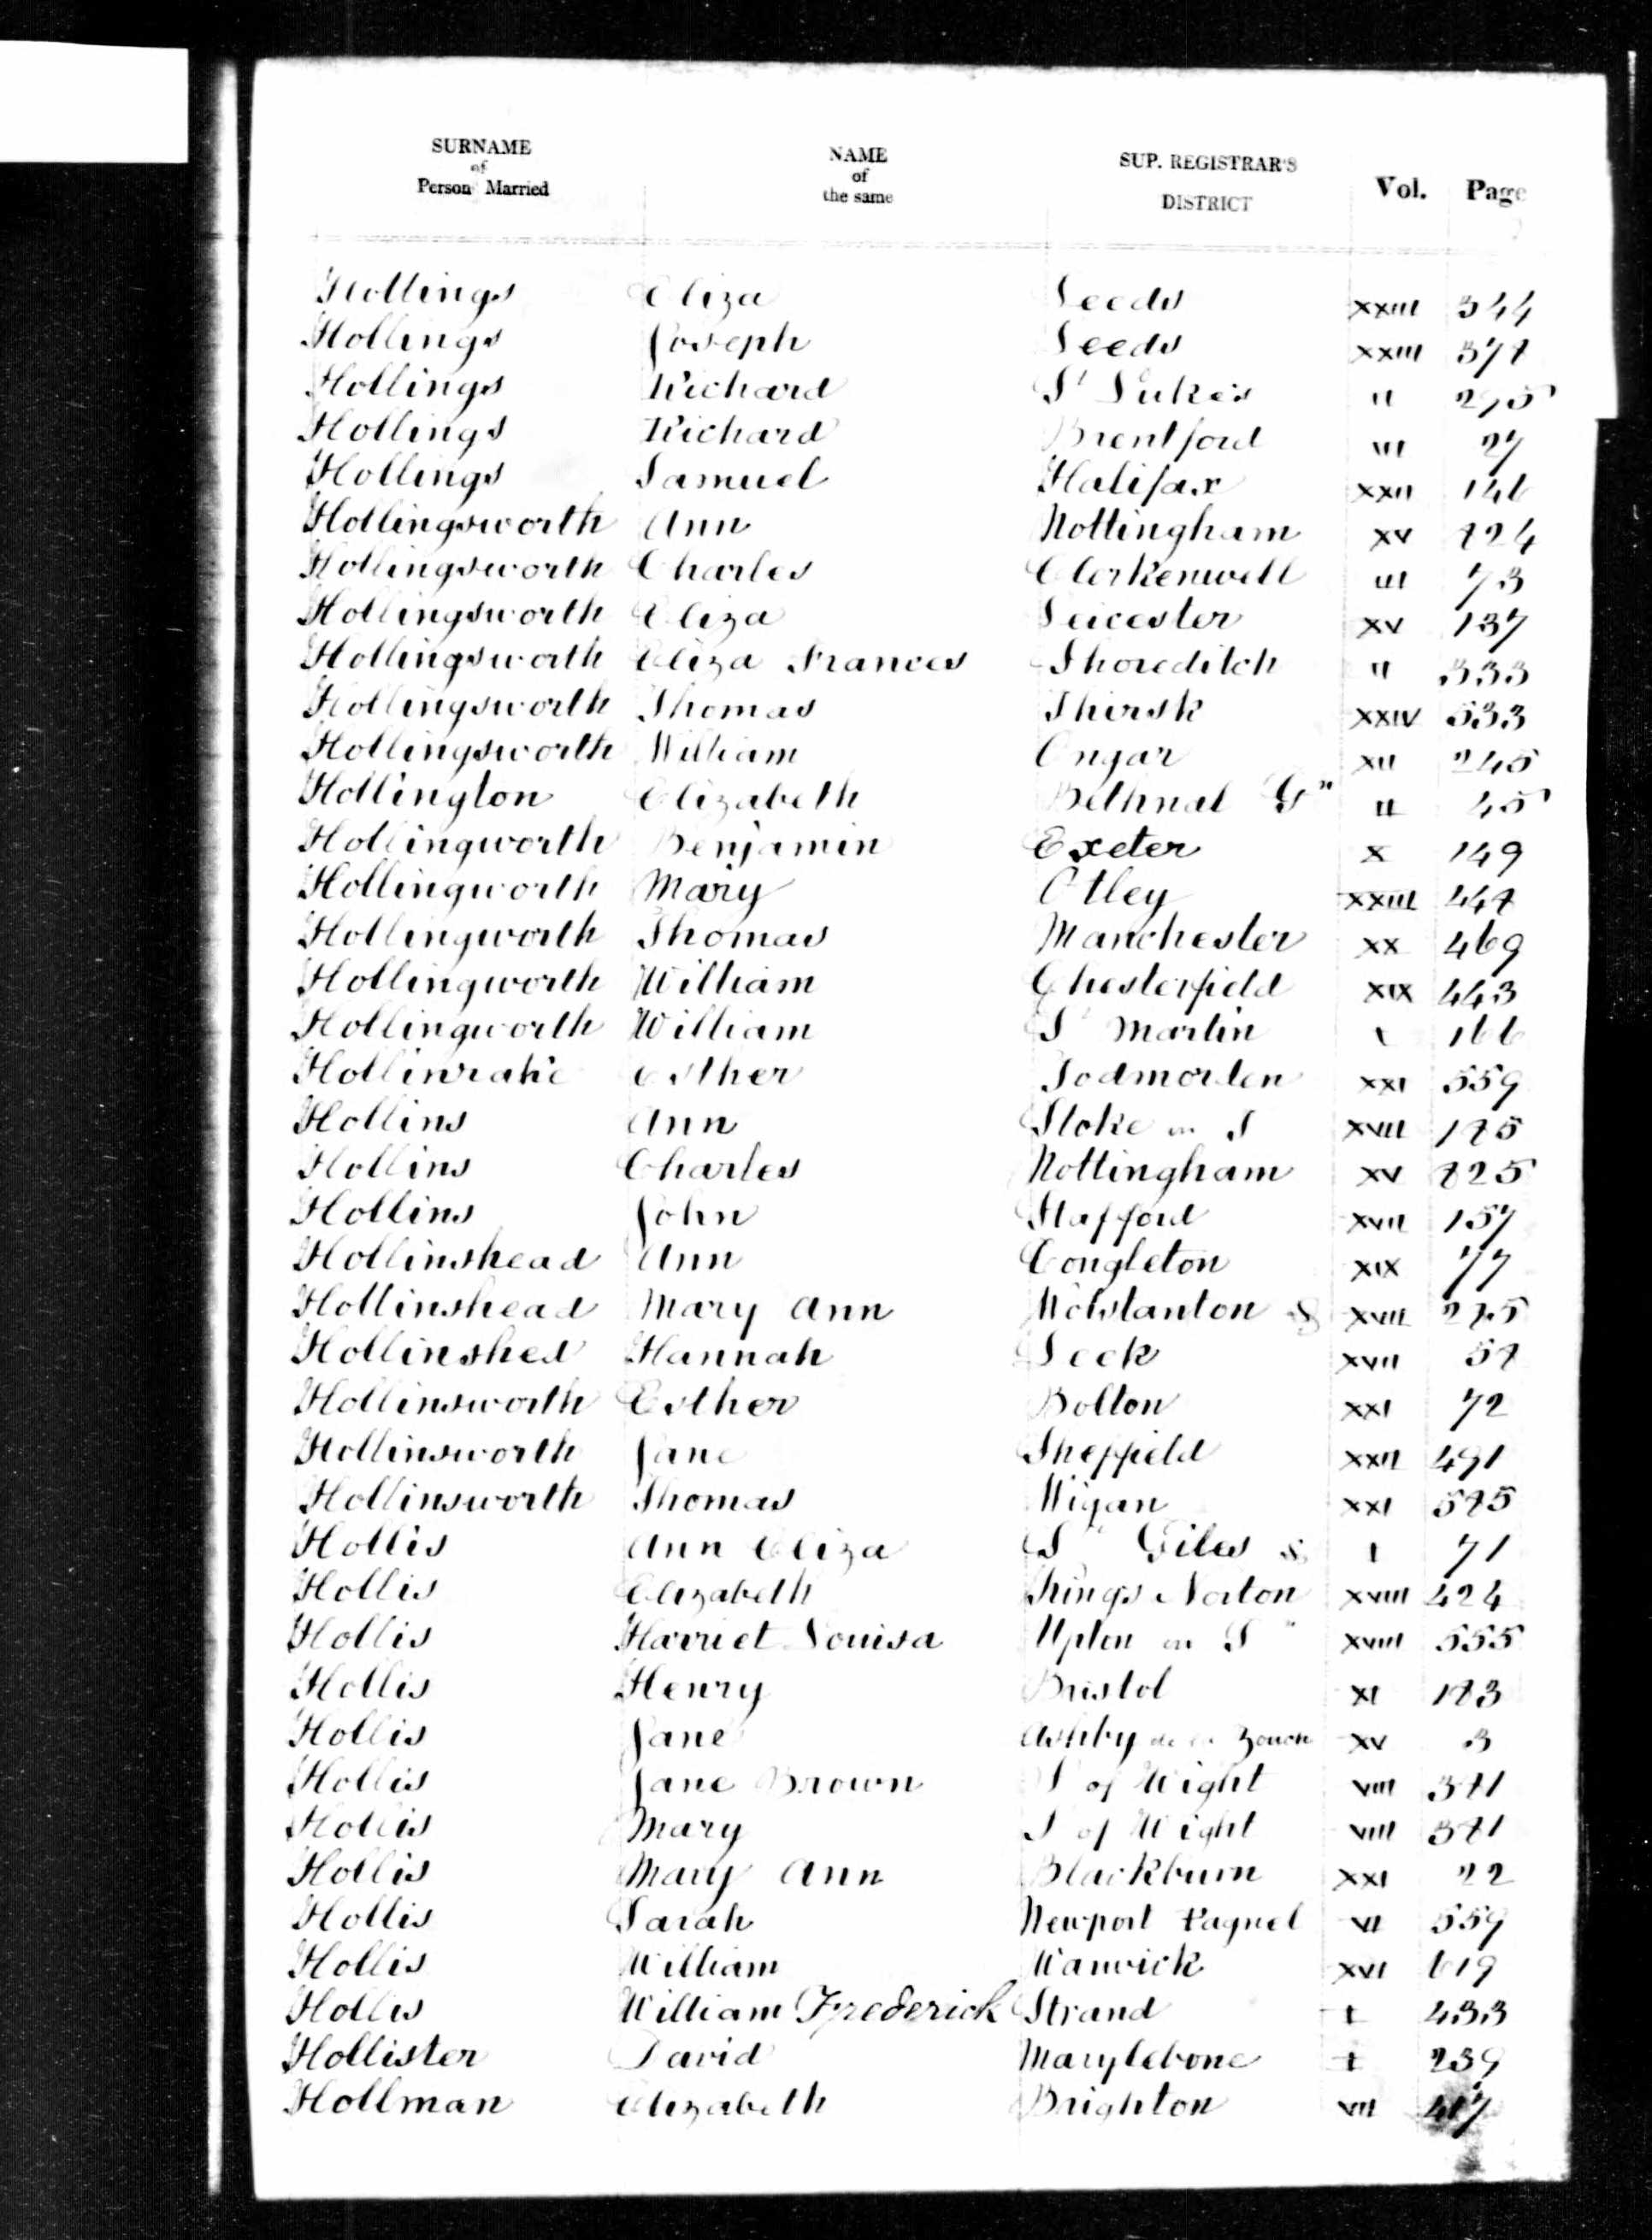 SURNAME of Person Married NAME of the same SUP. REGISTRAR'S DISTRICT Vol. Page
Hollings Eliza Leeds XXIII 344
Hollings Joseph Leeds XXIII 378
Hollings Richard St Luke's II 275
Hollings Richard Brentford III 27
Hollings Samuel Halifax XXII 146
Hollingsworth Ann Nottingham XV 824
Hollingsworth Charles Clerkenwell III 73
Hollingsworth Eliza Leicester XV 137
Hollingsworth Eliza Frances Shoreditch II 333
Hollingsworth Thomas Thirsk XXIV 533
Hollingsworth William Ongar XII 245
Hollington Elizabeth Bethnal Gn II 45
Hollingworth Benjamin Exeter X 149
Hollingworth Mary Otley XXIII 448
Hollingworth Thomas Manchester XX 469
Hollingworth William Chesterfield XIX 443
Hollingworth William St Martin I 166
Hollinrake Esther Todmorden XXI 559
Hollins Ann Stoke on T XVII 185
Hollins Charles Nottingham XV 825
Hollins John Stafford XVII 157
Hollinshead Ann Congleton XIX 77
Hollinshead Mary Ann Wolstanton & XVII 285
Hollinshed Hannah Leek XVII 58
Hollinsworth Esther Bolton XXI 72
Hollinsworth Jane Sheffield XXII 491
Hollinsworth Thomas Wigan XXI 585
Hollis Ann Eliza St Giles & I 71
Hollis Elizabeth Kings Norton XVIII 424
Hollis Harriet Louisa Upton on S XVIII 555
Hollis Henry Bristol XI 183
Hollis Jane Ashby de la Zouch XV 3
Hollis Jane Brown I of Wight VIII 381
Hollis Mary I of Wight VIII 381
Hollis Mary Ann Blackburn XXI 22
Hollis Sarah Newport Pagnel VI 559
Hollis William Warwick XVI 619
Hollis William Frederick Strand I 433
Hollister David Marylebone I 239
Hollman Elizabeth Brighton VII